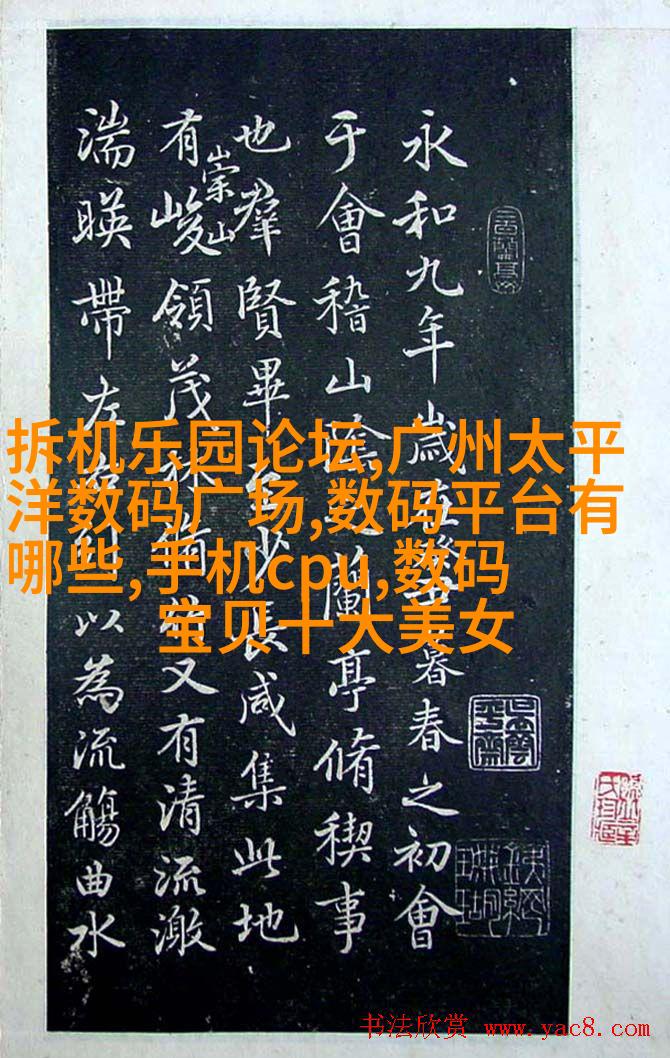 永和九年歲在癸丑暮春之初會
于會稽山陰之蘭亭脩稧事
也羣賢畢至少長咸集此地
有崇山峻領茂林脩竹又有清流激
湍暎帶左右引以為流觴曲水
拆机乐园论坛,广州太平
洋数码广场,数码平台有
哪些,手机cpu,数码
宝贝十大美女
书法欣赏 www.yac8.com